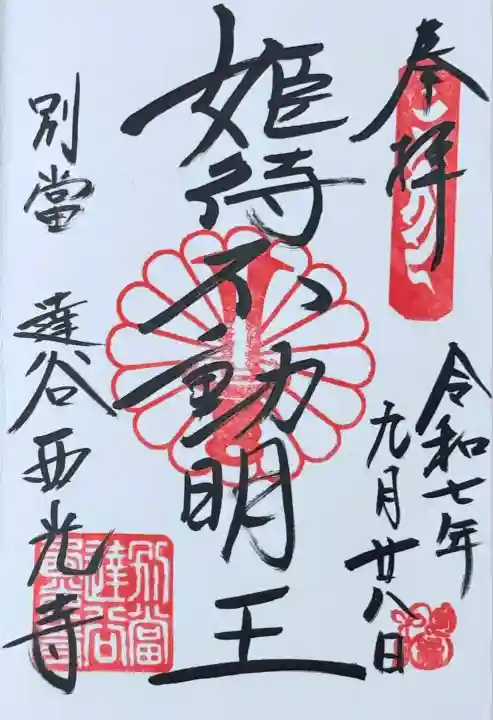 奉拝
令和七年
九月廿八日
姫待不動明王
別當 達谷西光寺